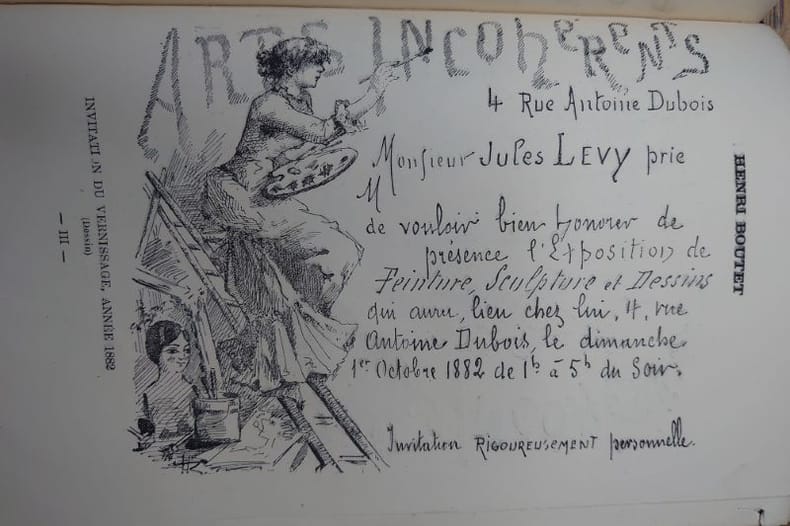 ARTS INCOHERENTS
4 Rue Antoine Dubois
Monsieur Jules LEVY prie
M
de vouloir bien honorer de
présence l'Exposition de
Peinture, Sculpture et Dessins
qui aura, lieu chez lui, 4, rue
Antoine Dubois, le dimanche
1er Octobre 1882 de 1h à 5h du Soir.
Invitation RIGOUREUSEMENT personnelle.
HENRI BOUTET
INVITATION DU VERNISSAGE, ANNÉE 1882
(Dessin)
— III —